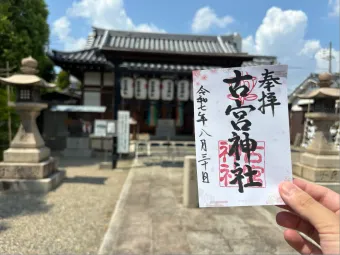 奉拝
古宮神社
令和七年八月三十日